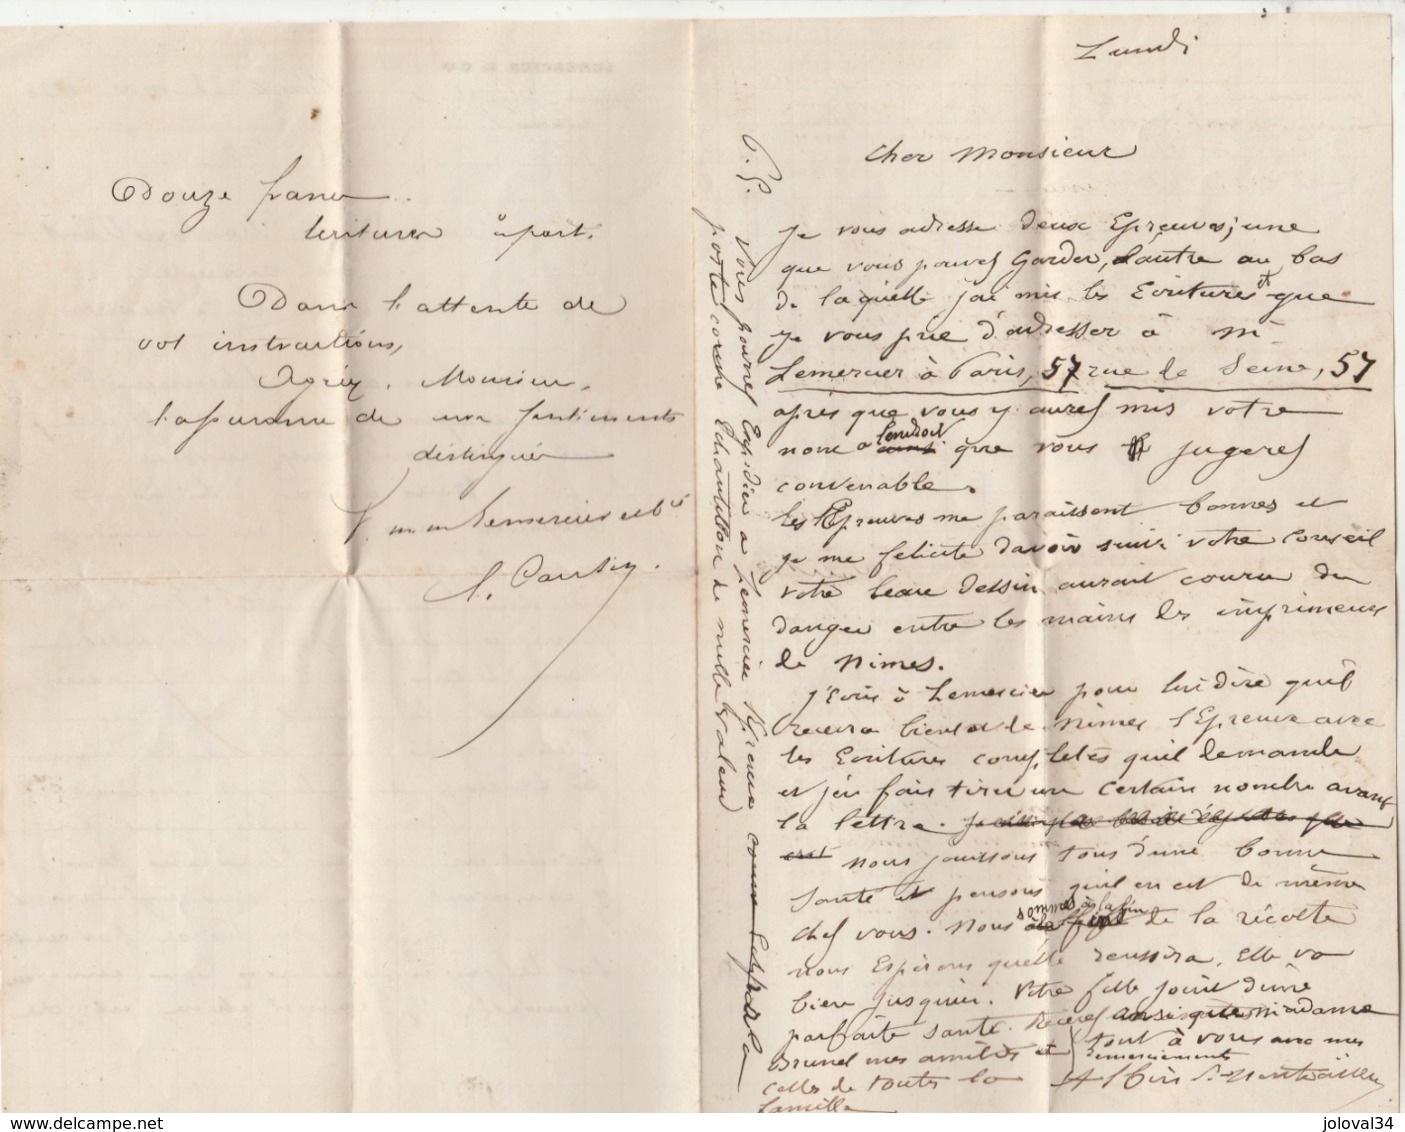 Douze francs
écritures à part.
Dans l'attente de
vos instructions,
Agréez, Monsieur,
l'assurance de nos sentiments
distingués
P. m m Lemercier et Cie
Lundi
Cher Monsieur
Je vous adresse deux Epreuves, une
que vous pouvez Garder, L'autre au bas
de laquelle j'ai mis les Ecritures et que
je vous prie d'adresser à Mr
Lemercier à Paris, 57 rue de Seine, 57
après que vous y aurez mis votre
nom a l'endroit que vous jugerez
convenable.
Les Epreuves me paraissent bonnes et
je me felicite d'avoir suivi votre Conseil
votre beau dessin aurait couru du
danger entre les mains des imprimeurs
de Nimes.
J'Ecris à Lemercier pour lui dire qu'il
recevra bientot de Nimes l'Epreuve avec
les Ecritures completes qu'il demande
et j'en fais tirer un certain nombre avant
la lettre.
Nous jouissons tous d'une bonne
santé et pensons qu'il en est de même
chez vous. Nous sommes à la fin de la récolte
nous Espérons qu'elle reussira. Elle va
bien jusqu'ici. Votre fille jouit d'une
parfaite santé. Recevez ansi que Madame
Brunel mes amitiés et
celles de toute la
famille
tout à vous avec mes
remerciements
P.S.
Vous pourrez Expédier a Lemercier l'Epreuve comme Echs par la
poste comme Echantillon de nulle valeur
joloval34